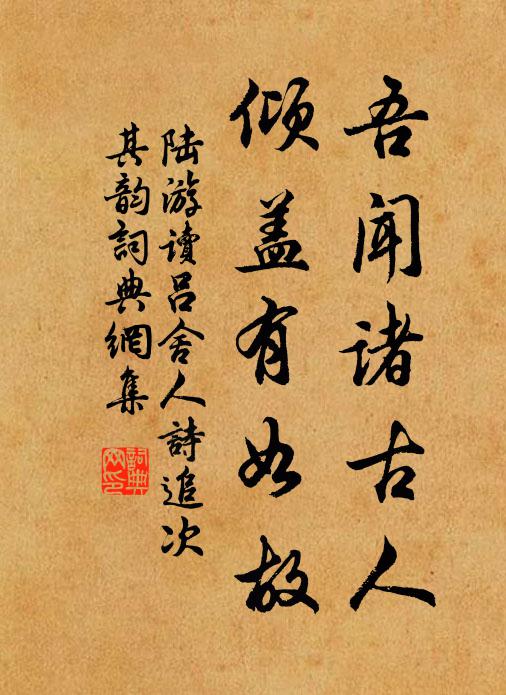 吾闻诸古人
倾盖有如故
陆游读吕舍人詩追次
其韵詞典網集
詞典網印